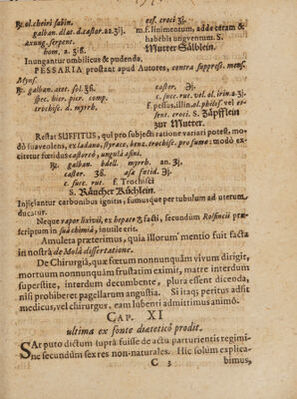 ℞. ol. cheiri sabin.
galban. dil. d. castor. aa. ʒiſ.
axung. serpent.
hom. a. ʒiß.
ess. croci ʒj.
m. f. linimentum, adde ceram &
habebis ungvenrum S.
Mutter Sälblein.
Inungantur umbilicus & pudenda.
PESSARIA prostant apud Autores, contra suppress. mens.
℞. galban. acet. sol. ʒß.
spec. hier. picr. comp.
trochisc. d. myrrh.
castor. ʒj.
c. succ. rut. vel ol. irin. ʒj.
f. pessus, illin. ol. philos. vel es-
sent. croci. S. Zäpfflein
zur Mutter.
Restat SUFFITUS, qui pro subjecti ratione variari potest, mo-
dò svaveolens, ex ladano, styrace, benz. trochisc. pro fumo: modò ex-
citetur fœtidus castoreô, ungulâ asini.
℞. galban. bdell. myrrh. an. ʒj.
castor. ʒß. asæ fœtid. ℈j.
c. succ. rut. f. Trochisci
S. Räucher Küchlein.
Insilientur carbonibus ignitis, fumusque per tubulum ad uterum
ducatur.
Neque vapor lixivii, ex hepate ☿ facti, secundum Rolfincii præ-
scriptum in suâ chimiâ, inutile erit.
Amuleta præterimus, quia illorum mentio fuit facta
in nostrâ de Molâ dissertatione.
De Chirurgiâ, quæ fœtum nonnunquàm vivum dirigit,
mortuum nonnunquàm frustatim eximit, matre interdum
superstite, interdum decumbente, plura essent dicenda,
nisi prohiberet pagellarum angustia. Si itaq; peritus adsit
medicus, vel chirurgus, eam lubenti admittimus animô.
CAP. XI
ultima ex fonte diætetico prodit.
SAt puto dictum suprà fuisse de actu parturientis regimi-
ne secundùm sex res non-naturales. Hic solum explica-
C 3 bimus,